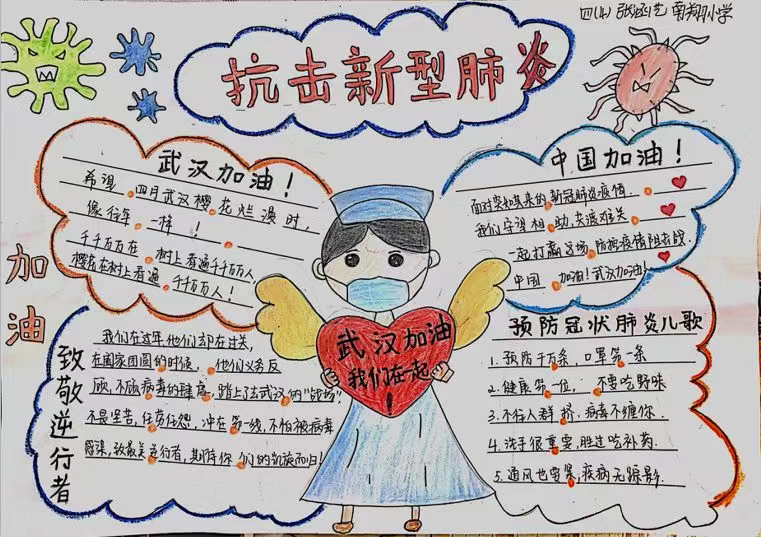 四(4) 张 艺 南翔小学
抗击新型肺炎
武汉加油！
希望四月武汉樱花烂漫时，
像往年一样！
千千万万在树上看遍千千万人
樱花在树上看遍千千万人！
中国加油！
面对突如其来的新冠肺炎疫情
我们守望相助,共度难关
一起打赢这场防控疫情阻击战.
中国加油!武汉加油!
加油
武汉加油
我们在一起
!
致敬逆行者
我们在过年,他们却在过关,
在阖家团圆的时候, 他们义务反
顾,不顾病毒的肆虐,踏上了去武汉的"战场"
不畏坚苦,任劳任怨,冲在第一线,不怕被病毒
感染,致最美逆行者,期待你们的凯旋而归!
预防冠状肺炎儿歌
1.预防千万条,口罩第一条
2.健康第一位, 不要吃野味
3.不往人群挤,病毒不缠你.
4.洗手很重要,胜过吃补药.
5.通风也要紧,疾病无踪影.